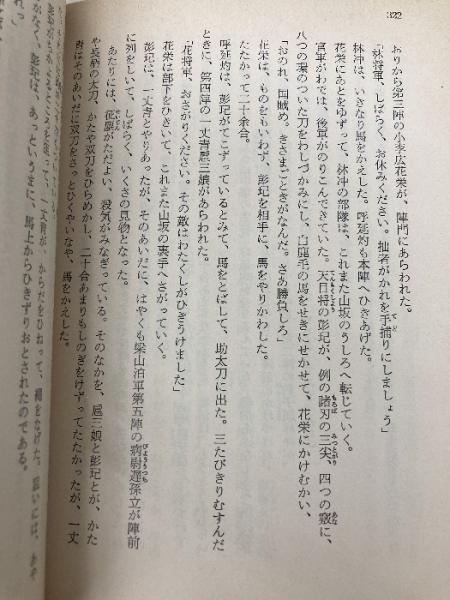 322
おりから第三陣の小李広花栄が、陣門にあらわれた。
「林将軍、しばらく、お休みください。拙者がかれを手捕りにしましょう」
林冲は、いきなり馬をかえした。呼延灼も本陣へひきあげた。
花栄にあとをゆずって、林冲の部隊は、これまた山坂のうしろへ転じていく。
官軍がわでは、後軍がのりこんできていた。天目将の彭玘が、例の諸刃の三尖、四つの竅に、
八つの環のついた刀をわしづかみにし、白鹿毛の馬をせきにせかせて、花栄にかけむかい、
「おのれ、国賊め。きさまごときがなんだ。さあ勝負しろ」
花栄は、ものもいわず、彭玘を相手に、馬をやりかわした。
たたかって二十余合。
呼延灼は、彭玘がてこずっているとみて、馬をとばして、助太刀に出た。三たびきりむすんだ
ときに、第四陣の一丈青扈三娘があらわれた。
「花将軍、おさがりください。その敵はわたくしがひきうけました」
花栄は部下をひきいて、これまた山坂の裏手へさがっていく。
彭玘は、一丈青とやりあったが、そのあいだに、はやくも梁山泊軍第五陣の病尉遅孫立が陣前
に列をしいて、しばらく、いくさの見物となった。
あたりには、征塵がただよい、殺気がみなぎっている。そのなかを、扈三娘と彭玘とが、かた
や長柄の大刀、かたや双刀をひらめかし、二十合あまりもしのぎをけずってたたかったが、一丈
青はそのあいだに双刀をさっとひくやいなや、馬をかえした。
からだをひねって、縄をなげた。
彭玘は、あっというまに、馬上からひきずりおとされたのである。